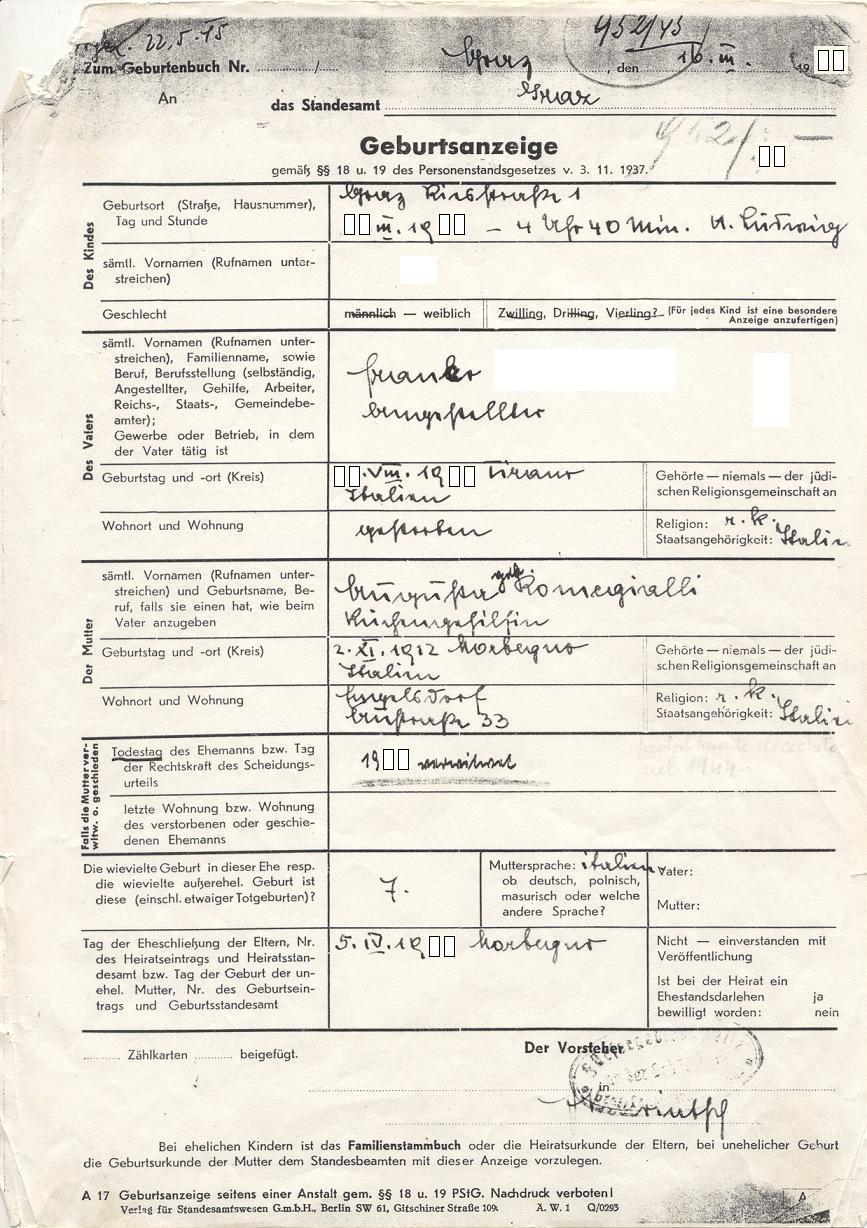 22.5.45
952/45
Zum Geburtenbuch Nr. ........../ Graz, den 10. III. 19
An das Standesamt Graz
Geburtsanzeige
952/
gemäß §§ 18 u. 19 des Personenstandsgesetzes v. 3. 11. 1937.
Des Kindes
Geburtsort (Straße, Hausnummer),
Tag und Stunde
Graz Riesstraße 1
III. 19 – 4 Uhr 40 Min.
sämtl. Vornamen (Rufnamen unter-
streichen)
Geschlecht
männlich — weiblich
Zwilling, Drilling, Vierling? (Für jedes Kind ist eine besondere
Anzeige anzufertigen)
Des Vaters
sämtl. Vornamen (Rufnamen unter-
streichen), Familienname, sowie
Beruf, Berufsstellung (selbständig,
Angestellter, Gehilfe, Arbeiter,
Reichs-, Staats-, Gemeindebe-
amter);
Gewerbe oder Betrieb, in dem
der Vater tätig ist
Franko
Angestellter
Geburtstag und -ort (Kreis)
VIII. 19 Tirano
Italien
Gehörte — niemals — der jüdi-
schen Religionsgemeinschaft an
Wohnort und Wohnung
gestorben
Religion: r. k.
Staatsangehörigkeit: Italien
Der Mutter
sämtl. Vornamen (Rufnamen unter-
streichen) und Geburtsname, Be-
ruf, falls sie einen hat, wie beim
Vater anzugeben
Augusta geb. Romegialli
Küchengehilfin
Geburtstag und -ort (Kreis)
2. XI. 1912 Morbegno
Italien
Gehörte — niemals — der jüdi-
schen Religionsgemeinschaft an
Wohnort und Wohnung
Engelsdorf
Austraße 33
Religion: r. k.
Staatsangehörigkeit: Italien
Falls die Mutter ver-
witw. o. geschieden
Todestag des Ehemanns bzw. Tag
der Rechtskraft des Scheidungs-
urteils
19 verwitwet
nel 1944-
letzte Wohnung bzw. Wohnung
des verstorbenen oder geschie-
denen Ehemanns
Die wievielte Geburt in dieser Ehe resp.
die wievielte außerehel. Geburt ist
diese (einschl. etwaiger Totgeburten)?
7.
Muttersprache: italien
ob deutsch, polnisch,
masurisch oder welche
andere Sprache?
Vater:
Mutter:
Tag der Eheschließung der Eltern, Nr.
des Heiratseintrags und Heiratsstan-
desamt bzw. Tag der Geburt der un-
ehel. Mutter, Nr. des Geburtsein-
trags und Geburtsstandesamt
5. IV. 19 Morbegno
Nicht — einverstanden mit
Veröffentlichung
Ist bei der Heirat ein
Ehestandsdarlehen ja
bewilligt worden: nein
.......... Zählkarten .......... beigefügt.
Der Vorsteher
in
Bei ehelichen Kindern ist das Familienstammbuch oder die Heiratsurkunde der Eltern, bei unehelicher Geburt
die Geburtsurkunde der Mutter dem Standesbeamten mit dieser Anzeige vorzulegen.
A 17 Geburtsanzeige seitens einer Anstalt gem. §§ 18 u. 19 PStG. Nachdruck verboten!
A
Verlag für Standesamtswesen G.m.b.H., Berlin SW 61, Gitschiner Straße 109. A. W. 1 Q/0293